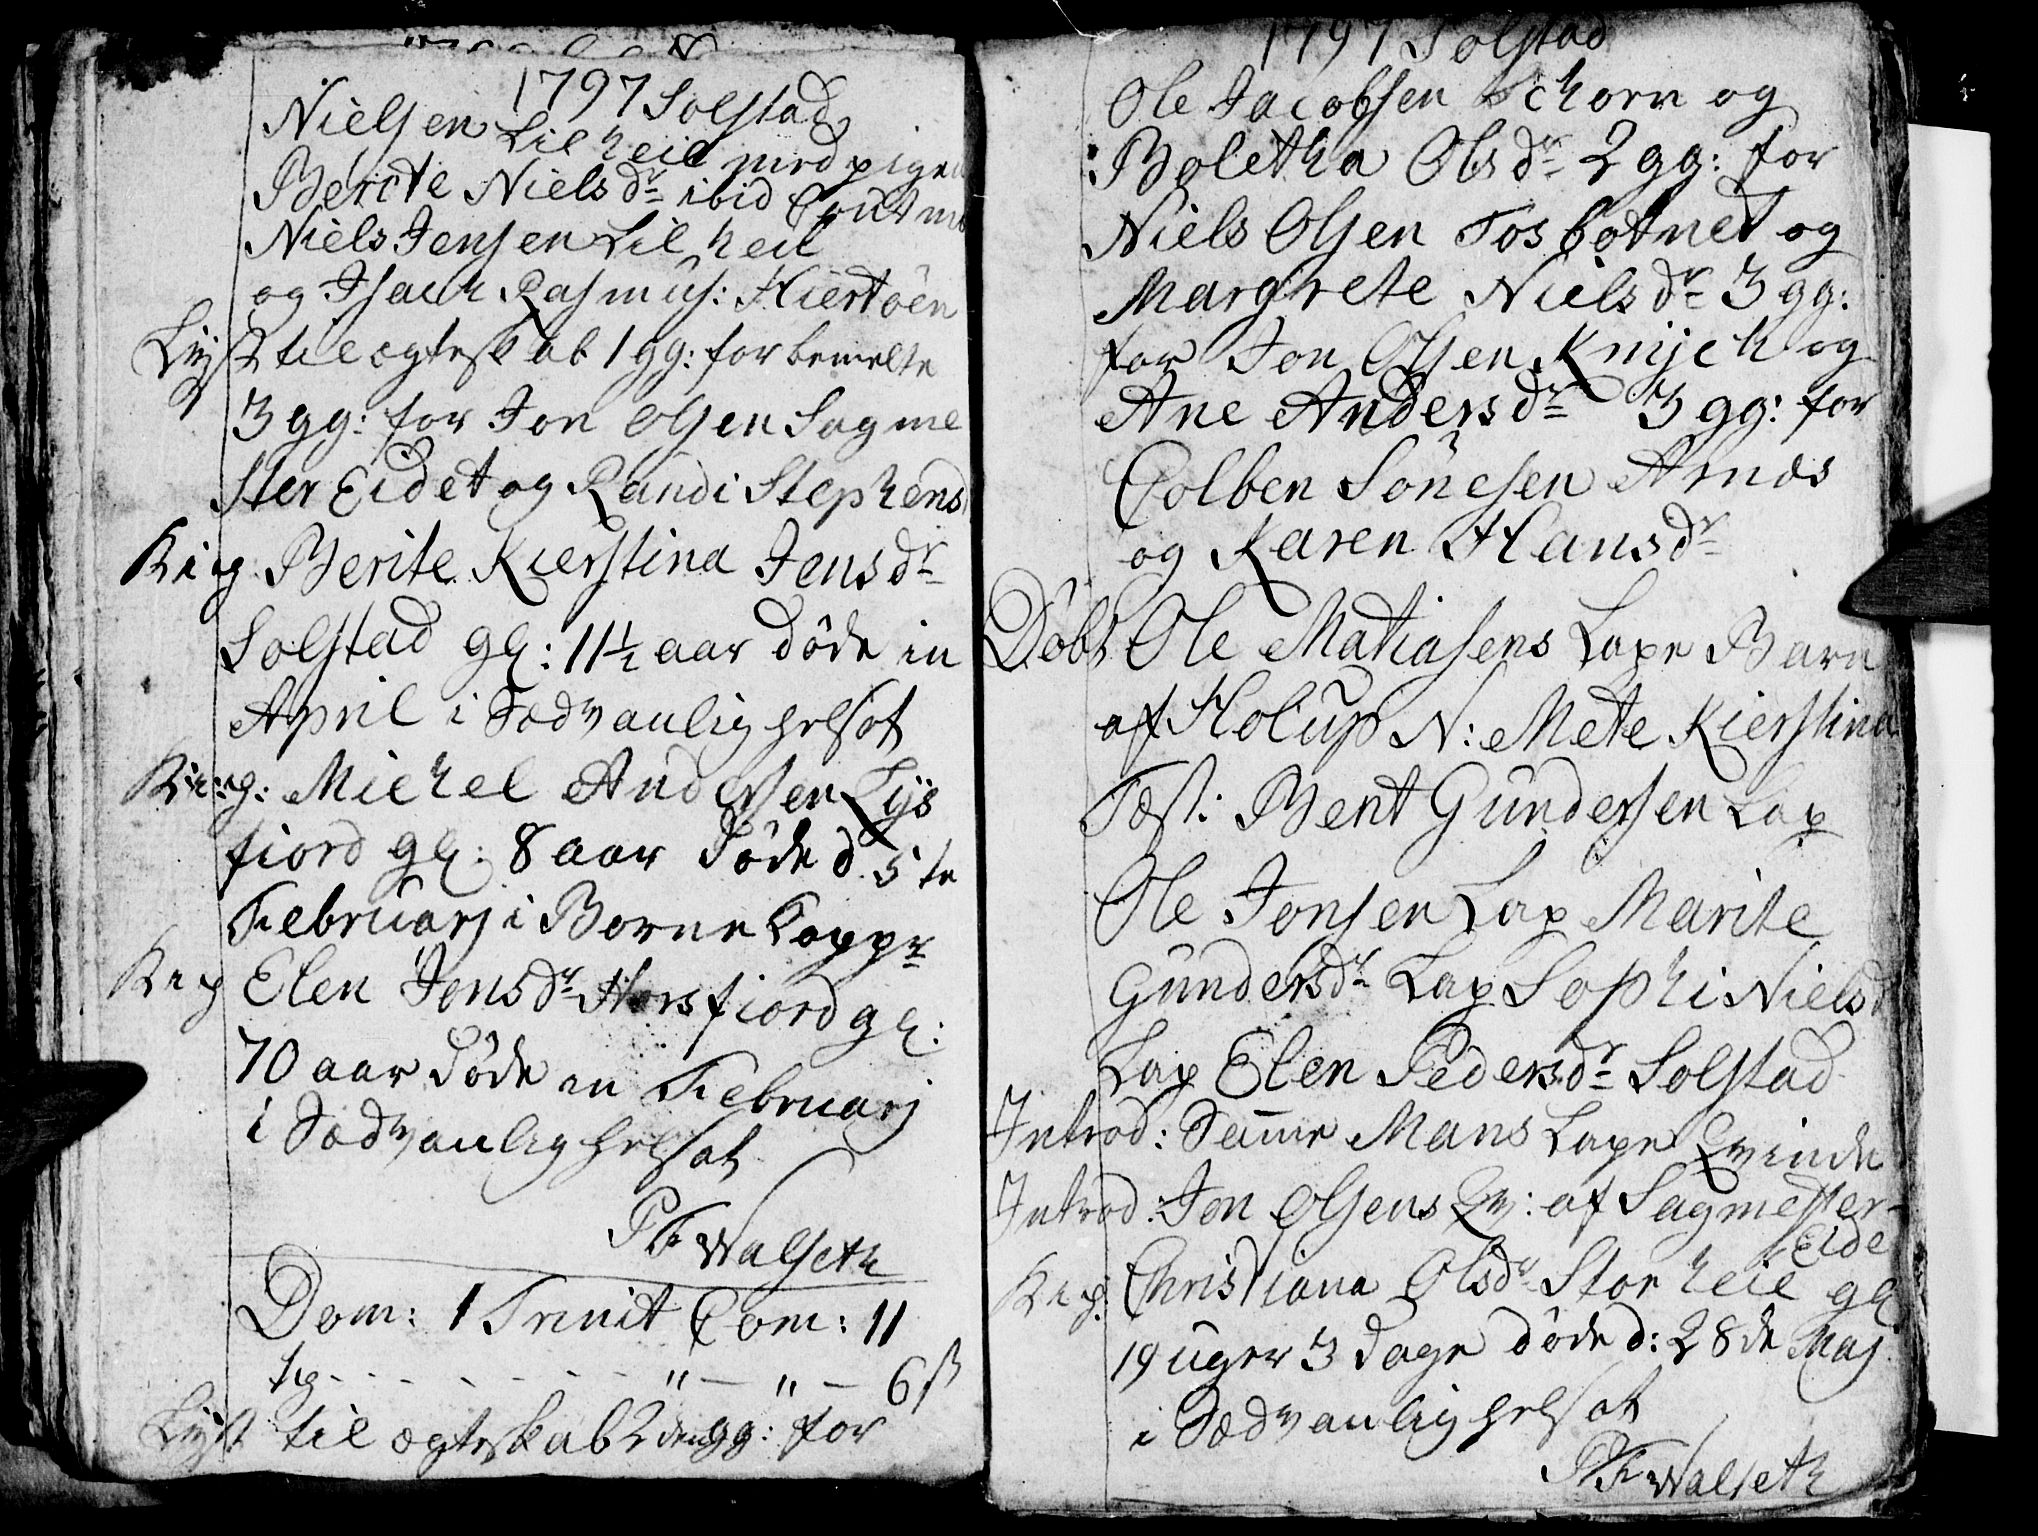 1797 Solstad
Nielsen Lilheil med pigen
Berete Nielsdr ibid Cout
Niels Jensen Lilheil
og Isach Rasmus: Hiertöen
Lyst til ægteskab 1 gg: for bemelte
3 gg: for Jon Olsen Sagme
ster Eidet og Randi Stephens
Kig Berite Kierstina Jensdr
Solstad gl: 11½ aar döde in
April i Sædvanlig helsot
King: Michel Andersen Tys
fiord gl: 8 aar döde d. 5te
Februarj i Börne Kopper
Kig Elen Jonsdr Horsfiord gl:
70 aar döde in Februarj
i Sædvanlig helsot
PFWalseth
Dom: 1 Trinit Com: 11
tg - - - - - - - " — " — 6 ß
Lyst til ægteskab 2den gg: for
1797 Solstad
Ole Jacobsen Schorn og
Boletha Olsdr 2 gg: for
Niels Olsen Tosbotned og
Margrete Nielsdr 3 gg:
for Jon Olsen Knijch og
Ane Andersdr 3 gg: for
Colben Sönesen Arnds
og Karen Hansdr
Döbt Ole Matiasens Lape Barn
af Holup N: Mete Kierstina
Test: Bent Gundersen Lap
Ole Jonsen Lap Marite
Gundersdr Lap Sophi Nielsd
Lap Elen Pedersdr Solstad
Introd: Samme Mans Lape Qvinde
Introd: Jon Olsens Qv: af Sagmester-
Eide
Kig. Christiana Olsdr Storheie gl
19 uger 3 dage döde d: 28de Maj
i Sædvanlig helsot
PFWalseth